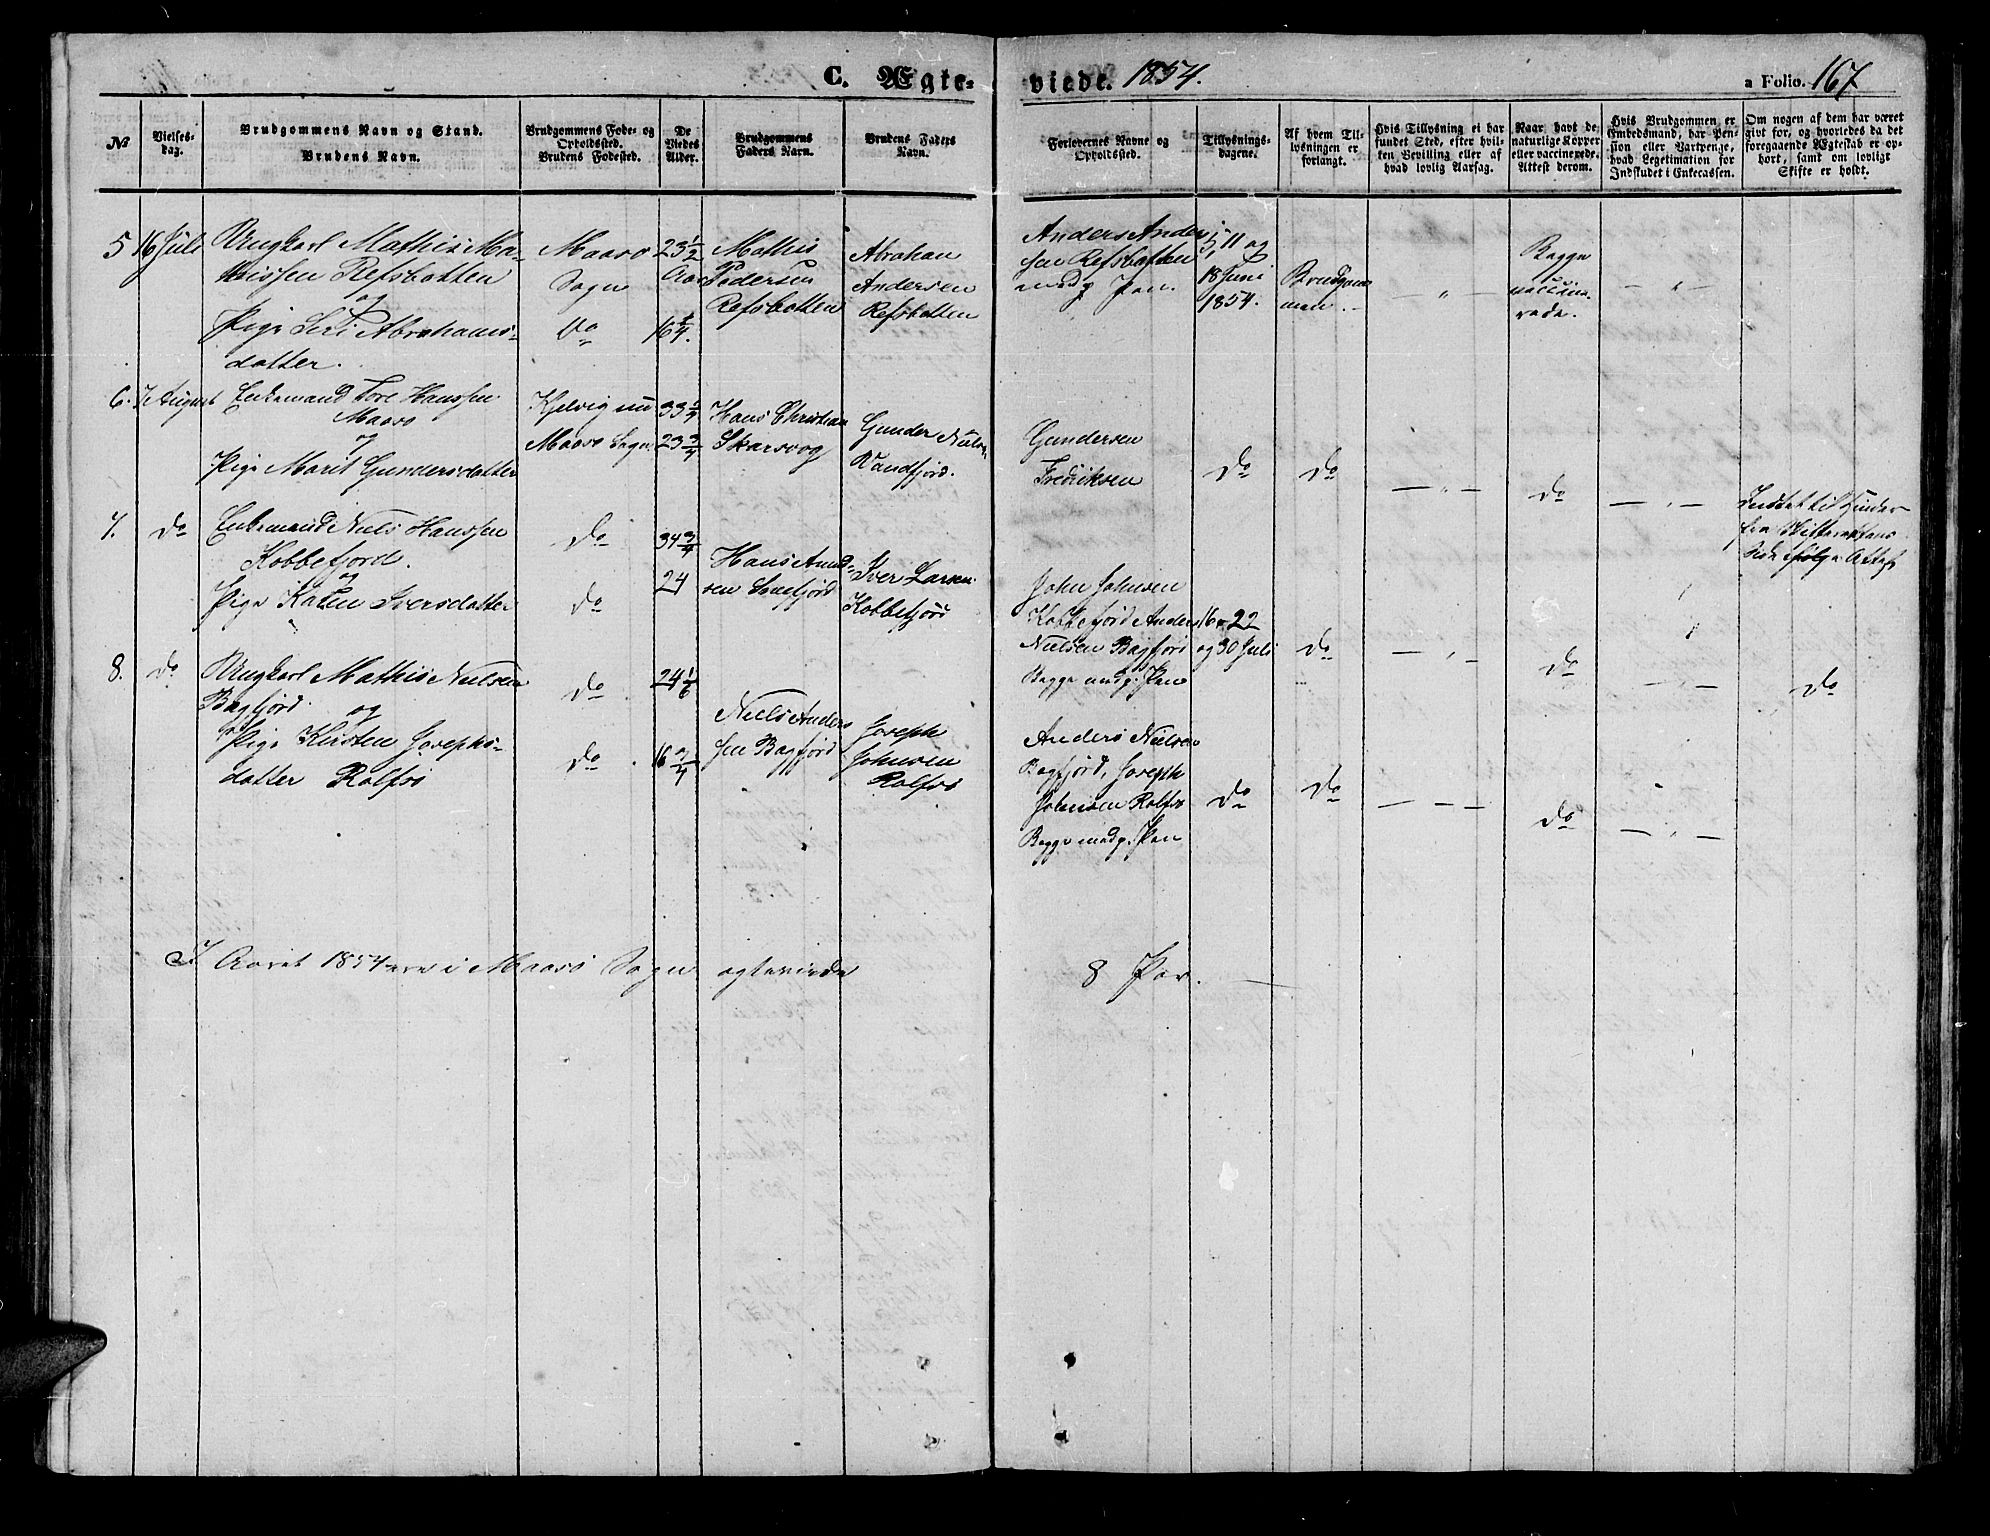 C. Ægte-
viede. 1854.
a Folio. 167
№
Vielses-
dag.
Brudgommens Navn og Stand.
Brudens Navn.
Brudgommens Føde- og
Opholdssted.
Brudens Fødested.
De
Viedes
Alder.
Brudgommens
Faders Navn.
Brudens Faders
Navn.
Forlovernes Navne og
Opholdssted.
Tillysnings-
dagene.
Af hvem Til-
lysningen er
forlangt.
Hvis Tillysning ei har
fundet Sted, efter hvil-
ken Bevilling eller af
hvad lovlig Aarsag.
Naar havt de
naturlige Kopper
eller vaccinerede,
Attest derom.
Hvis Brudgommen er
Embedsmand, har Pen-
sion eller Vartpenge,
hvad Legitimation for
Indskudet i Enkecassen.
Om nogen af dem har været
givt for, og hvorledes da det
foregaaende Ægteskab er op-
hørt, samt om lovligt
Skifte er holdt.
5 16 Juli
Ungkarl Mathis Ma-
thissen Refsbotten
og
Pige Siri Abrahams-
datter.
Maasø
Sogn
Do
23 1/2
Aar
16 1/4.
Mathis
Pedersen
Refsbotten
Abraham
Andersen
Refsbotten
Anders Ander
sen Refsbotten
medg Jan.
5, 11 og
18 Juni
1854.
Brudgom-
men.
— „ —
Begge
vaccine-
rede.
— „ —
6. 7 August
Enkemand Tore Hanssen
Maasø
og
Pige Marit Gundersdatter
Kjelvig nu
Maasø Sogn
33 1/4
23 3/4
Hans Christian
Skarsvog
Gunder Niels
Vandfjord.
Gundersen
Fredriksen
Do
Do
— „ —
Do
— „ —
7. Do
Enkemand Niels Hanssen
Kobbefjord.
og
Pige Karen Iversdatter
Do
Do
34 3/4
24
Hans Amund-
sen
Iver Larsen
Kobbefjord
John Johnsen
Kobbefjord Anders
Nielsen Bagfjord
Begge medg. Jan
16 22
og 30 Juli
Do
— „ —
Do
— „ —
Do
8. Do
Ungkarl Mathis Nielsen
Bagfjord.
og
Pige Kirsten Josephs-
datter Rolfsø
Do
Do
24 1/6
16 3/4
Niels Anders
sen Bagfjord
Joseph
Johnsen
Rolfsø
Anders Nielsen
Bagfjord, Joseph
Johnsen Rolfsø
Begge medg. Jan
Do
Do
— — —
Do
— „ —
I Aaret 1854 ere i Maasø Sogn ægteviede 8 Par.